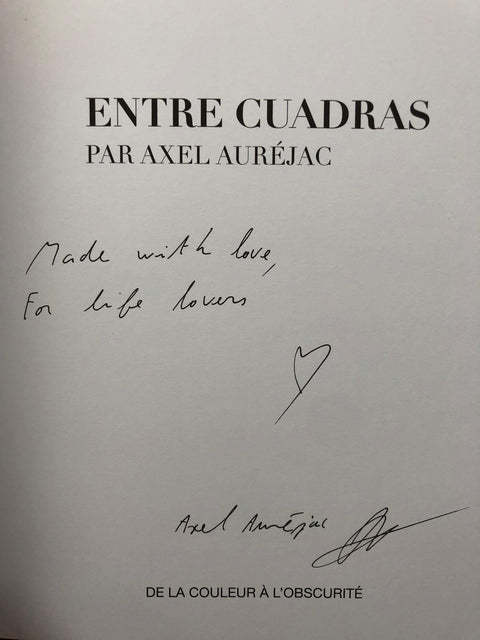 ENTRE CUADRAS
PAR AXEL AURÉJAC
Made with love,
For life lovers
Axel Auréjac
DE LA COULEUR À L'OBSCURITÉ